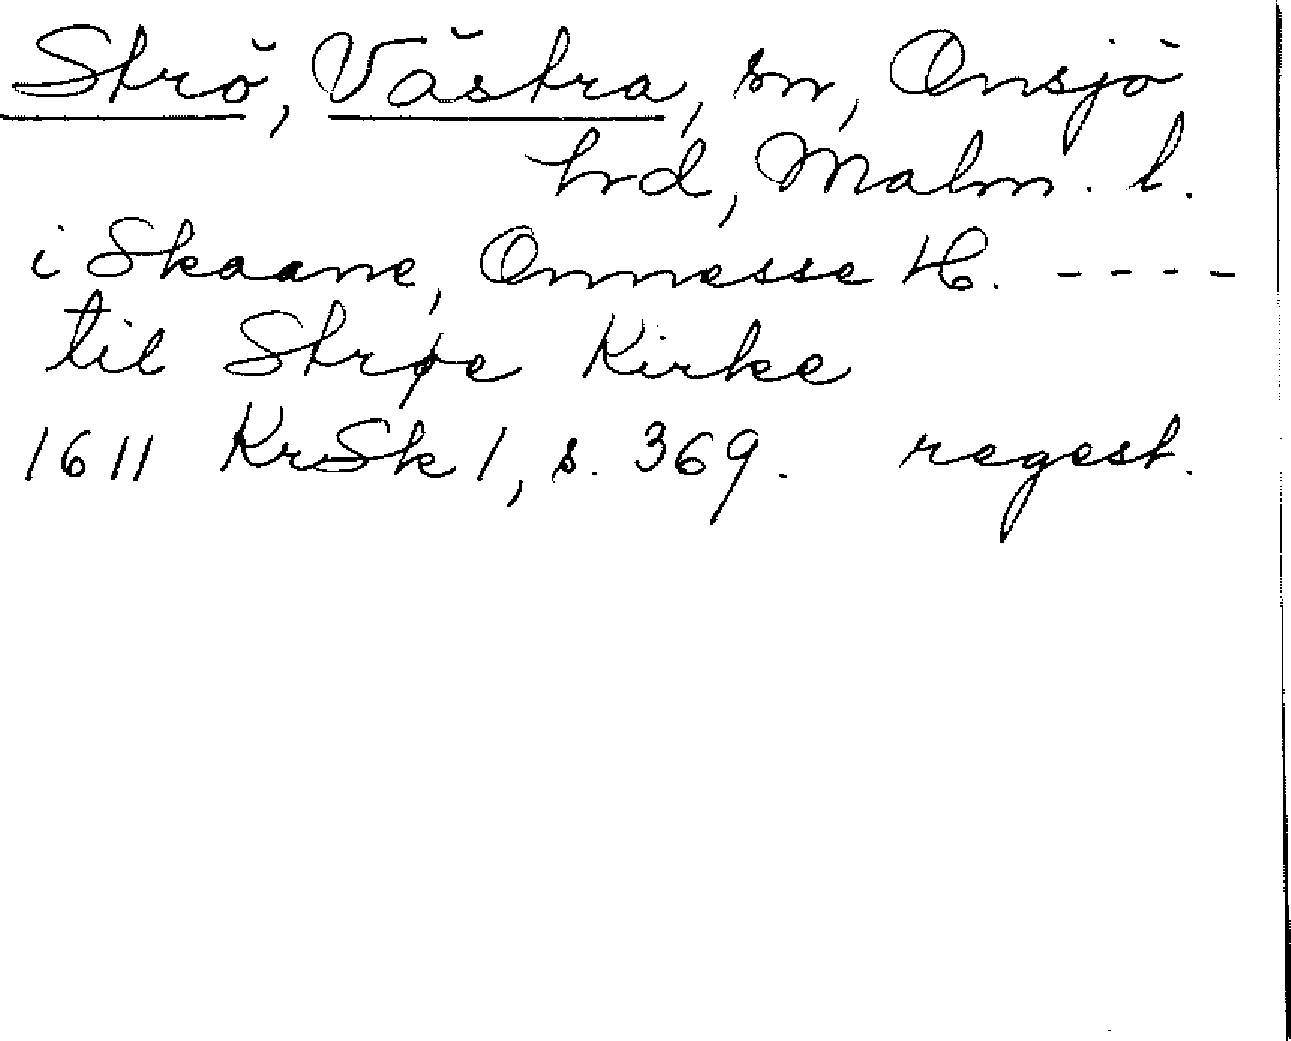 Strö, Västra, sn, Onsjö
hrd, Malm. l.
i Skaane, Onnesse H. ----
til Strøe Kirke
1611 KrSk 1, s. 369. regest.